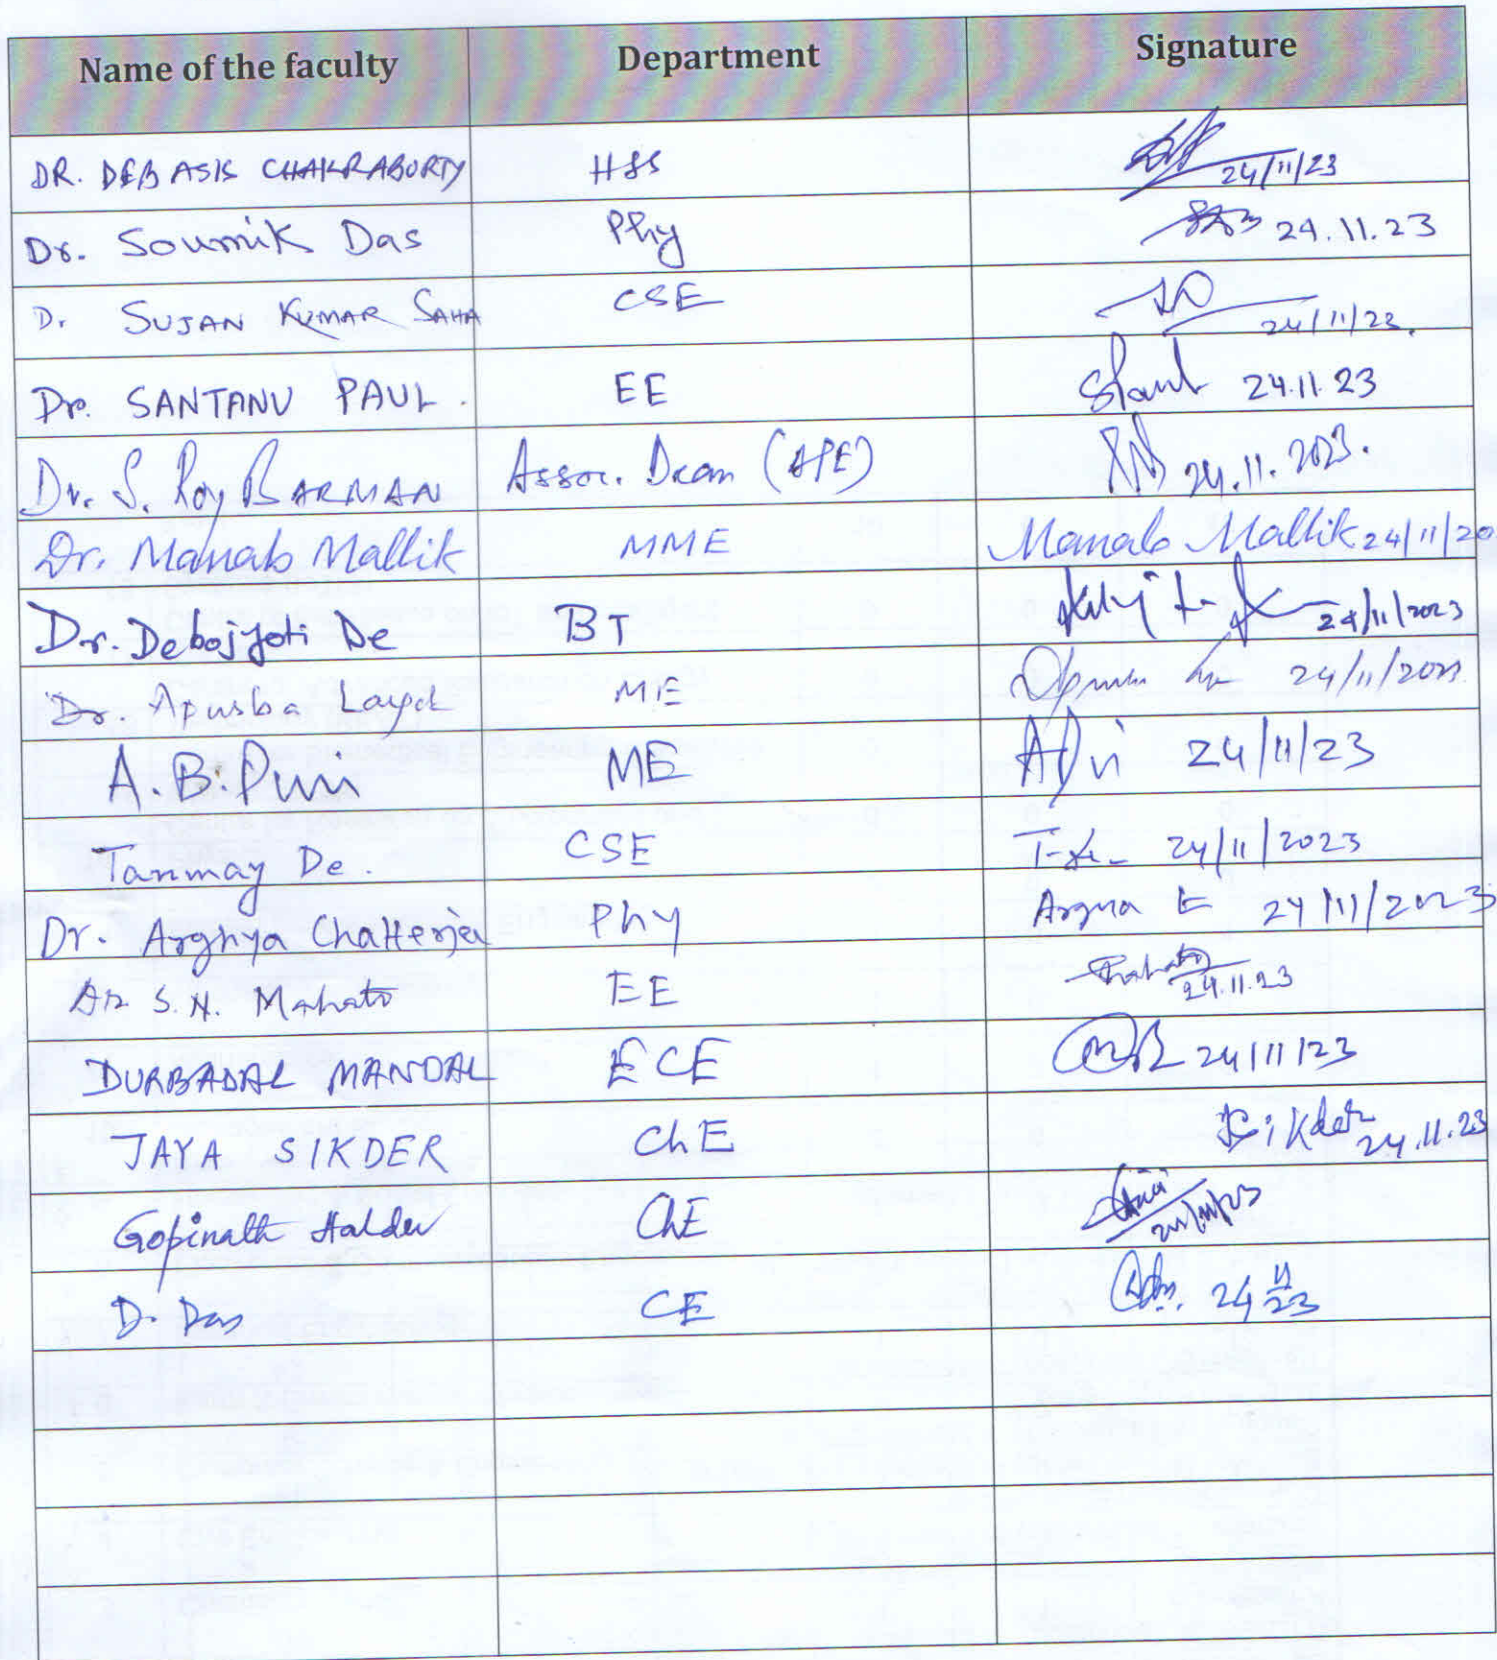 Name of the faculty Department Signature
DR. DEBASIS CHAKRABORTY HSS 24/11/23
Dr. Soumik Das Phy 24.11.23
D. SUJAN KUMAR SAHA CSE 24/11/23.
Dr. SANTANU PAUL. EE SPaul 24.11.23
Dr. S. Roy BARMAN Assoc. Dean 24.11.2023.
Dr. Manab Mallik MME Manab Mallik 24/11/20
Dr. Debojyoti De BT 24/11/2023
Dr. Apurba Layek ME 24/11/2023
A.B. Puri ME 24/11/23
Tanmay De. CSE 24/11/2023
Dr. Arghya Chatterjee Phy 24/11/2023
Dr S.N. Mahato EE Mahato 24.11.23
DURBADAL MANDAL ECE 24/11/23
JAYA SIKDER ChE Sikder 24.11.23
Gopinath Halder ChE 24/11/23
D. Das CE 24 11 23